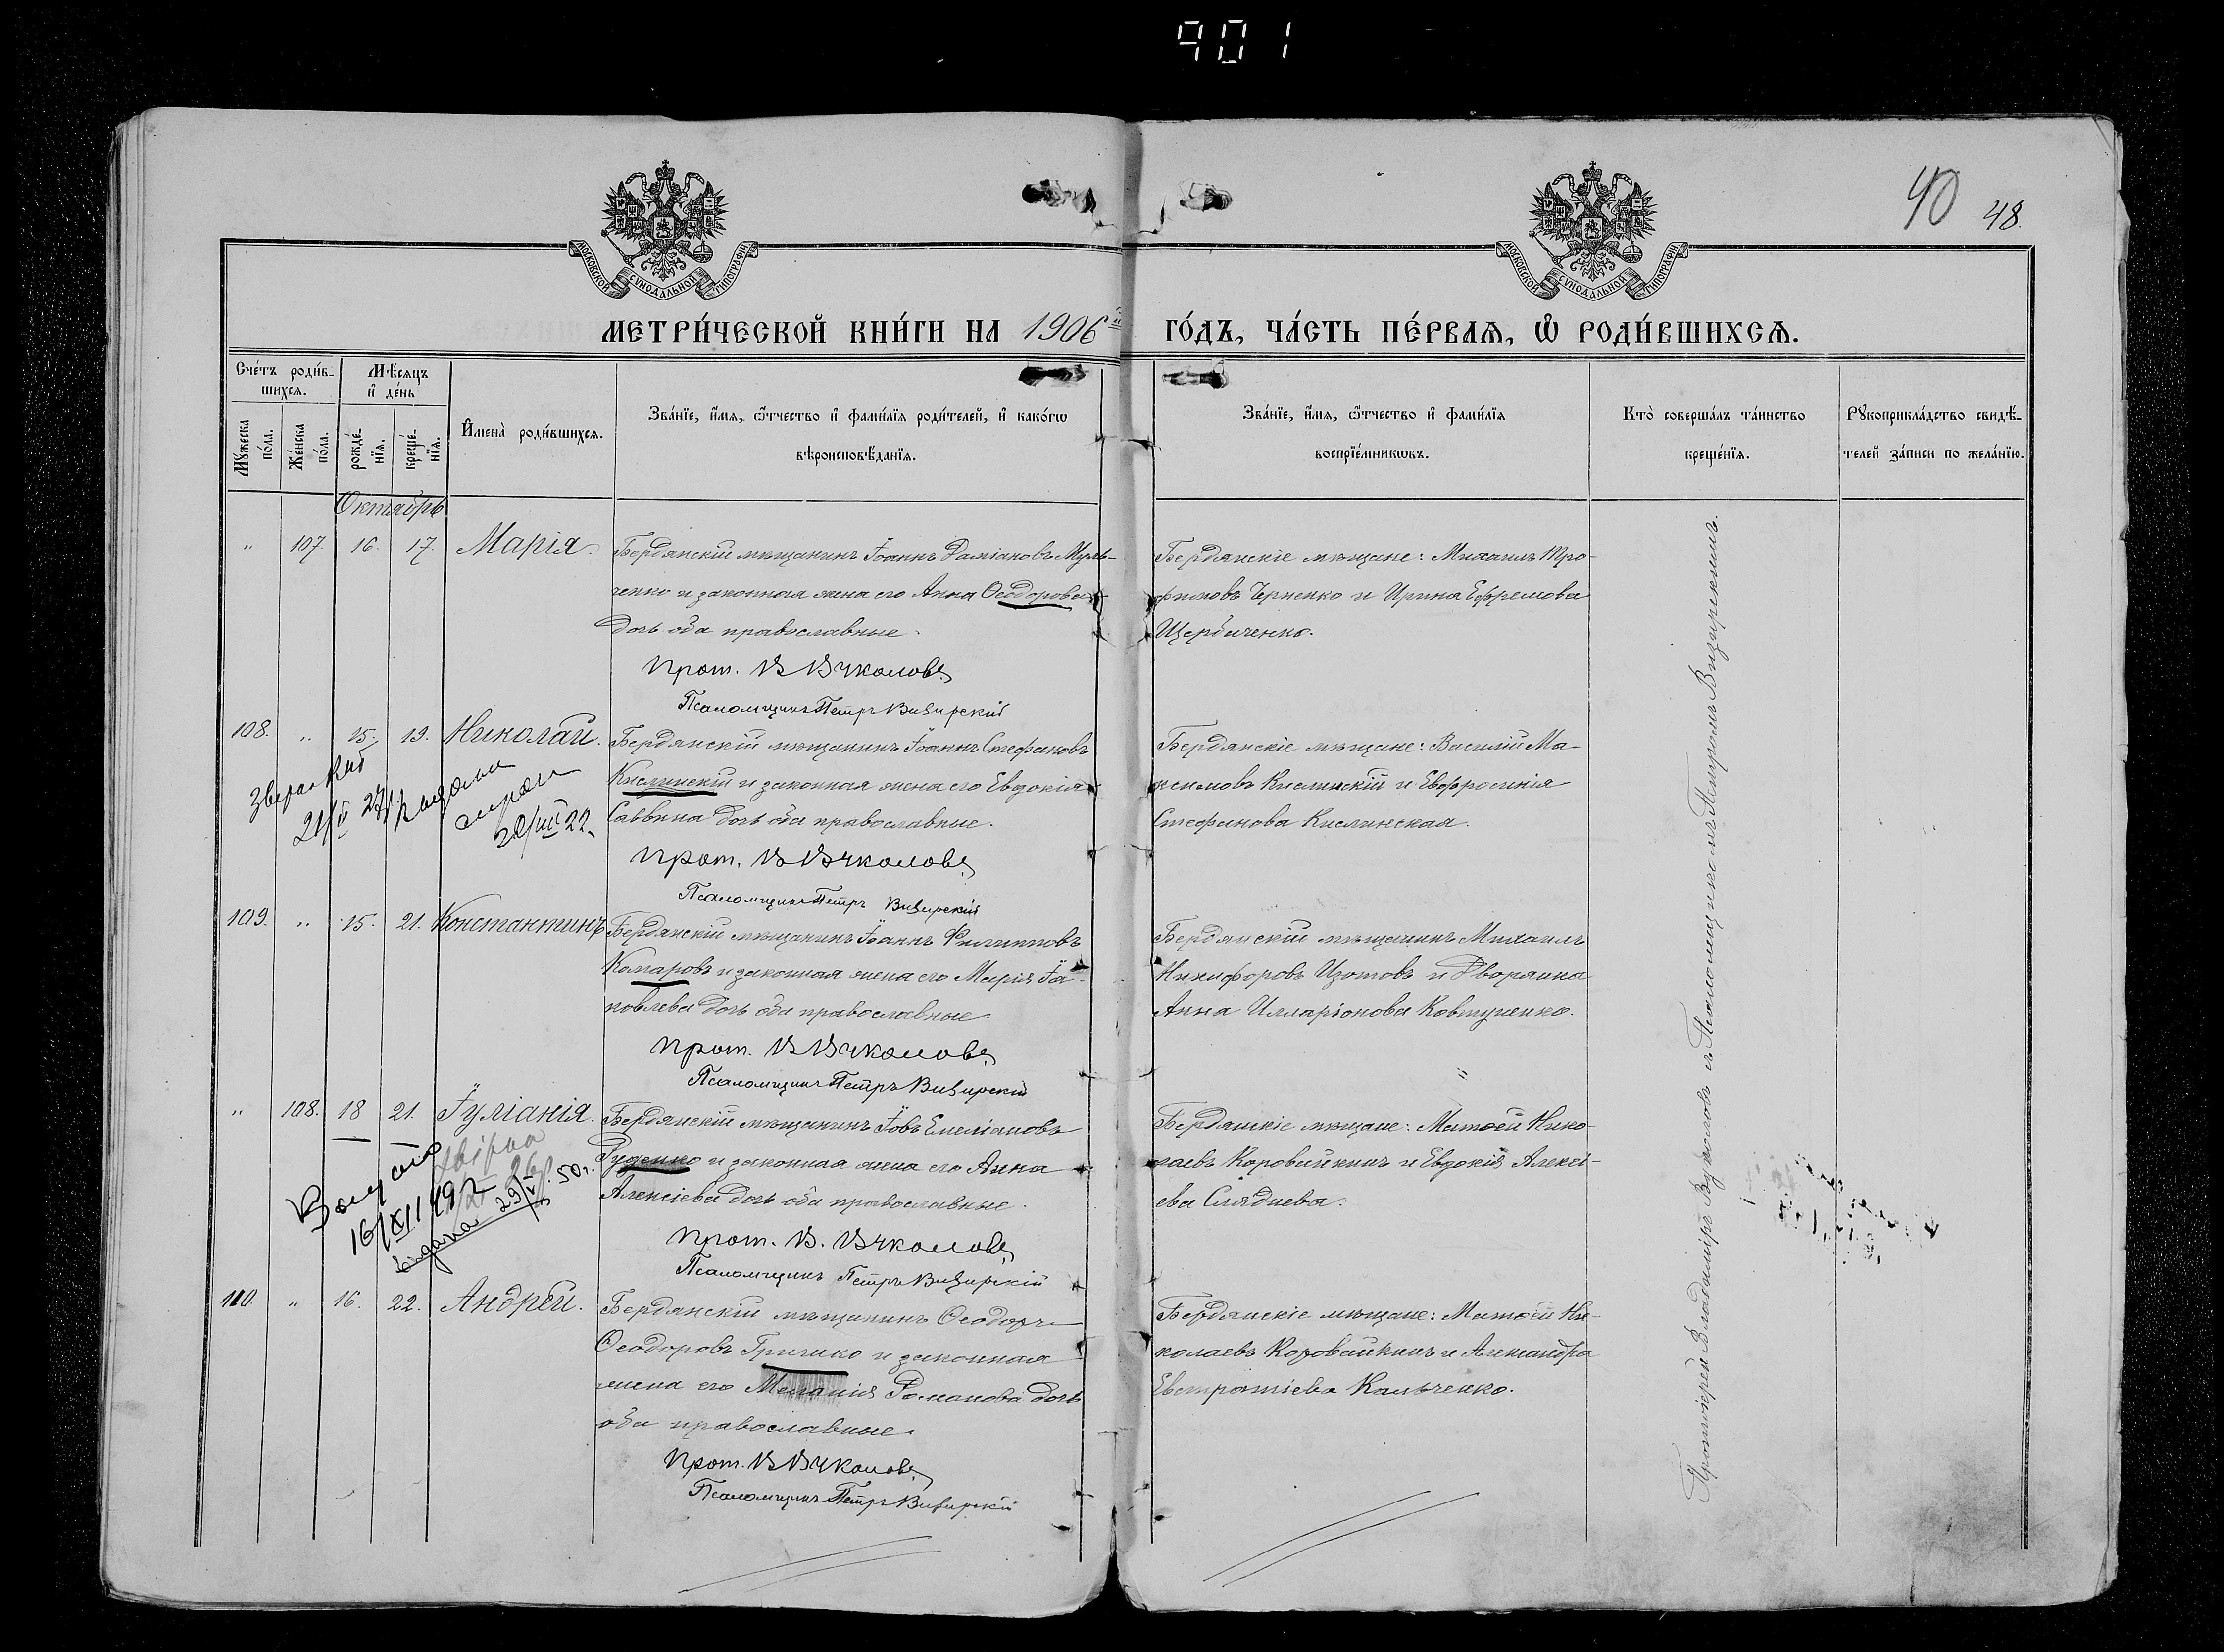 901
40 48.
МОСКОВСКОЙ СѴНОДАЛЬНОЙ ТИПОГРАФІИ
МОСКОВСКОЙ СѴНОДАЛЬНОЙ ТИПОГРАФІИ
МЕТРИ́ЧЕСКОЙ КНИ́ГИ НА 1906й ГО́ДЪ, ЧА́СТЬ ПЕ́РВАѦ, Ѿ РОДИ́ВШИХСѦ.
Сче́тъ роди́в-
шихсѧ.
Мѣ́сѧцъ
и҆ де́нь
Мꙋ́жеска
по́ла.
Же́нска
по́ла.
рожде́-
нїѧ.
креще́-
нїѧ.
И҆мена̀ роди́вшихсѧ.
Зва́нїе, и҆́мѧ, ѻ҆́тчество и҆ фами́лїѧ роди́телей, и҆ како́гѡ
вѣроисповѣ́данїѧ.
Зва́нїе, и҆́мѧ, ѻ҆́тчество и҆ фами́лїѧ
воспрїе́мникѡвъ.
Кто̀ соверша́лъ та́инство
креще́нїѧ.
Рꙋкоприкла́дство свидѣ́-
телей за́писи по жела́нїю.
Октябрь
" 107. 16. 17. Марія.
Бердянскій мѣщанинъ Іоаннъ Даміановъ Муль-
ченко и законная жена его Анна Ѳеодорова
дочь оба православные.
Прот. В Вучколовъ
Псаломщикъ Петръ Визирскій
Бердянскіе мѣщане: Михаилъ Тро-
фимовъ Черненко и Ирина Ефремова
Щербиченко.
108. " 15. 19. Николай.
Бердянскій мѣщанинъ Іоаннъ Стефановъ
Кислинскій и законная жена его Евдокія
Саввина дочь оба православные.
Прот. В Вучколовъ
Псаломщикъ Петръ Визирскій
21/II 27
20/VIII 22
Бердянскіе мѣщане: Василій Ма-
ксимовъ Кислинскій и Евфросинія
Стефанова Кислинская.
109. " 15. 21. Константинъ
Бердянскій мѣщанинъ Іоаннъ Филипповъ
Комаровъ и законная жена его Марія Іа-
ковлева дочь оба православные
Прот. В Вучколовъ
Псаломщикъ Петръ Визирскій
Бердянскій мѣщанинъ Михаилъ
Никифоровъ Изотовъ и Дворянка
Анна Илларіонова Ковтуненко.
" 108. 18 21. Іуліанія.
Бердянскій мѣщанинъ Іовъ Емеліановъ
Руденко и законная жена его Анна
Алексіева дочь оба православные.
Прот. В. Вучколовъ
Псаломщикъ Петръ Визирскій
29/V. 50 г.
Бердянскіе мѣщане: Матѳей Нико-
лаевъ Коровайкинъ и Евдокія Алексі-
ева Сляднева.
110. " 16. 22. Андрей.
Бердянскій мѣщанинъ Ѳеодоръ
Ѳеодоровъ Гричко и законная
жена его Меланія Романова дочь
оба православные.
Прот. В Вучколовъ
Псаломщикъ Петръ Визирскій
Бердянскіе мѣщане: Матѳей Ни-
колаевъ Коровайкинъ и Александра
Евстратіева Кальченко.